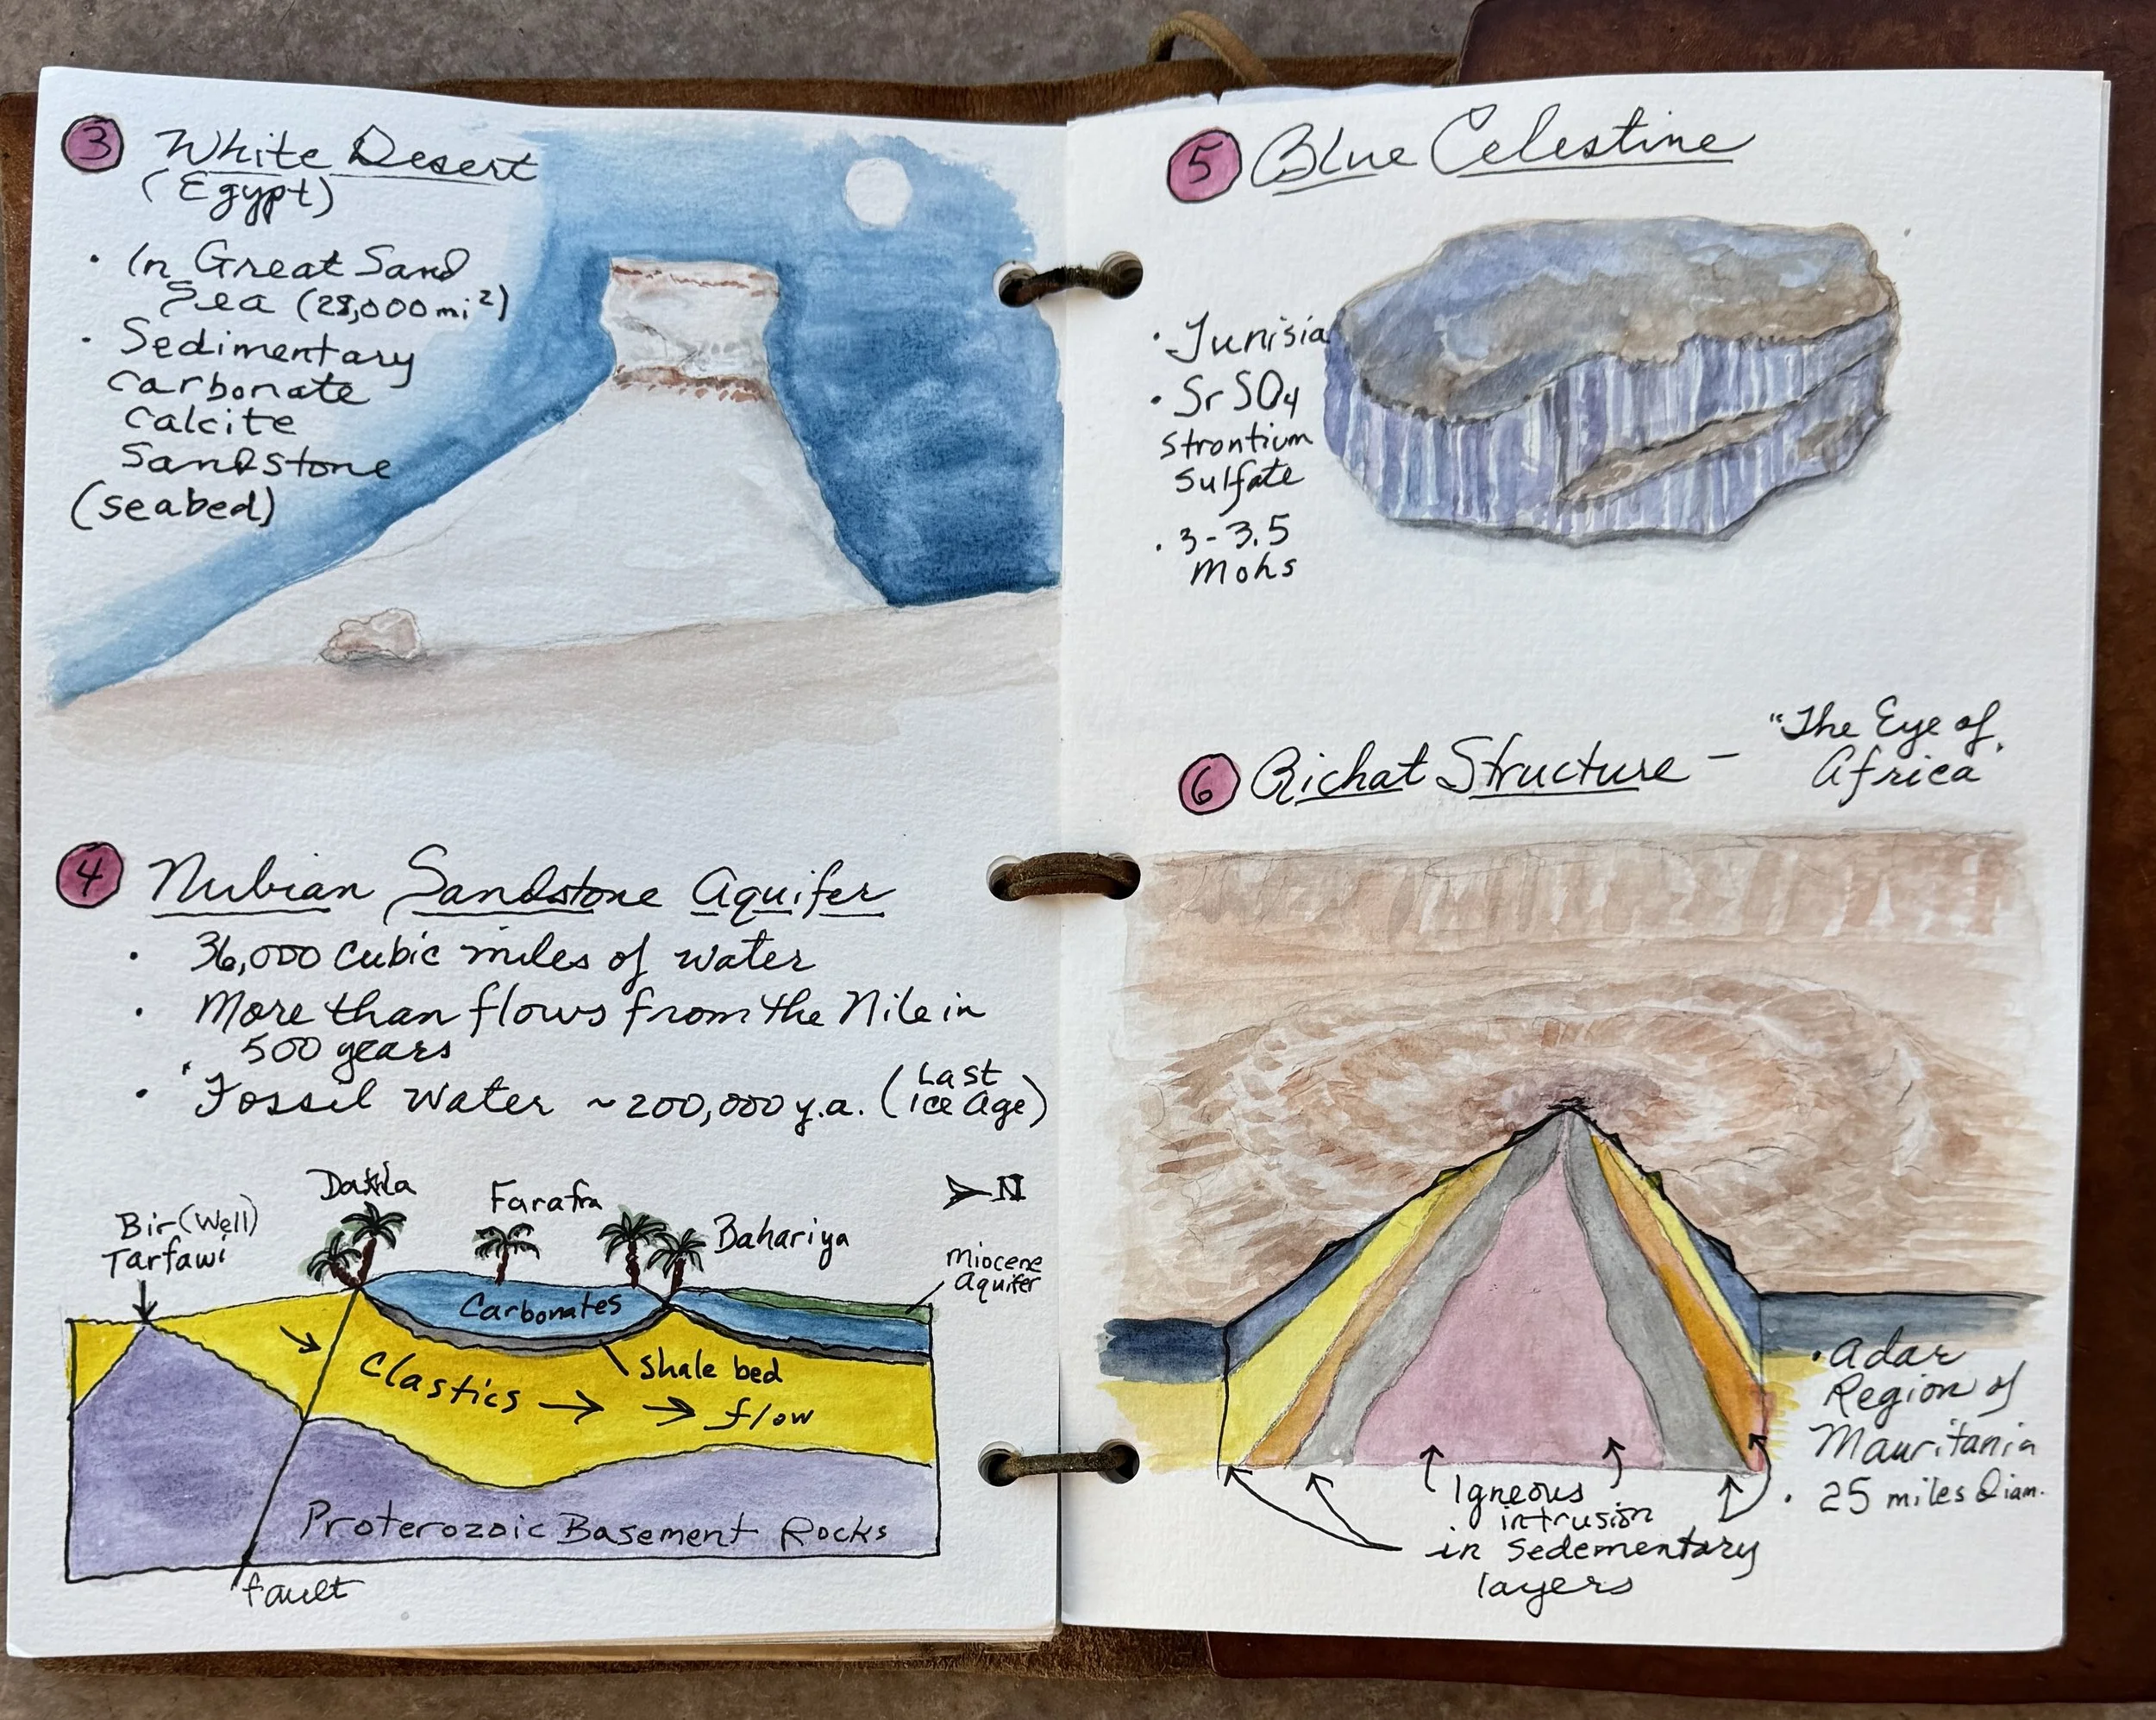 3 White Desert
(Egypt)
• In Great Sand
Sea (28,000 mi²)
• Sedimentary
carbonate
calcite
Sandstone
(seabed)
4 Nubian Sandstone Aquifer
• 36,000 cubic miles of water
• More than flows from the Nile in
500 years
• Fossil Water ~200,000 y.a. (Last
ice Age)
Dakhla
Farafra
N
Bir (Well)
Tarfawi
Bahariya
Miocene
Aquifer
Carbonates
Clastics → → flow
Shale bed
Proterozoic Basement Rocks
fault
5 Blue Celestine
• Tunisia
• SrSO4
Strontium
Sulfate
• 3-3.5
Mohs
6 Richat Structure - "The Eye of
Africa"
• Adar
Region of
Mauritania
• 25 miles Diam.
Igneous
intrusion
in Sedementary
layers